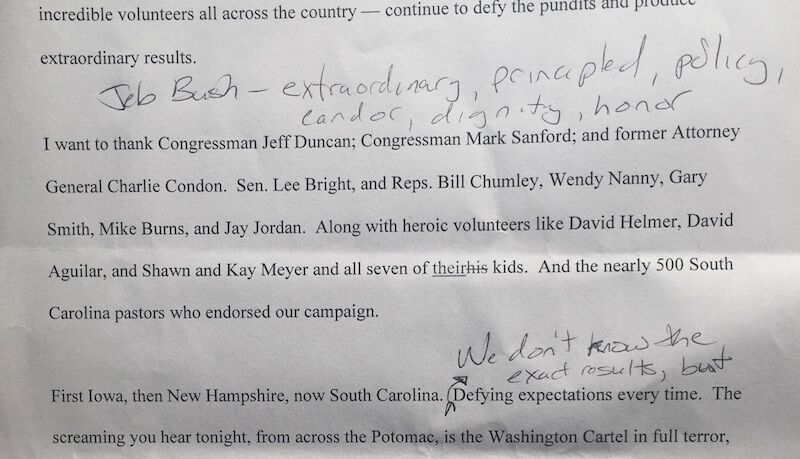 incredible volunteers all across the country — continue to defy the pundits and produce
extraordinary results.
Jeb Bush – extraordinary, principled, policy,
candor, dignity, honor
I want to thank Congressman Jeff Duncan; Congressman Mark Sanford; and former Attorney
General Charlie Condon.  Sen. Lee Bright, and Reps. Bill Chumley, Wendy Nanny, Gary
Smith, Mike Burns, and Jay Jordan.  Along with heroic volunteers like David Helmer, David
Aguilar, and Shawn and Kay Meyer and all seven of theirhis kids.  And the nearly 500 South
Carolina pastors who endorsed our campaign.
We don't know the
exact results, but
First Iowa, then New Hampshire, now South Carolina.  Defying expectations every time.  The
screaming you hear tonight, from across the Potomac, is the Washington Cartel in full terror,